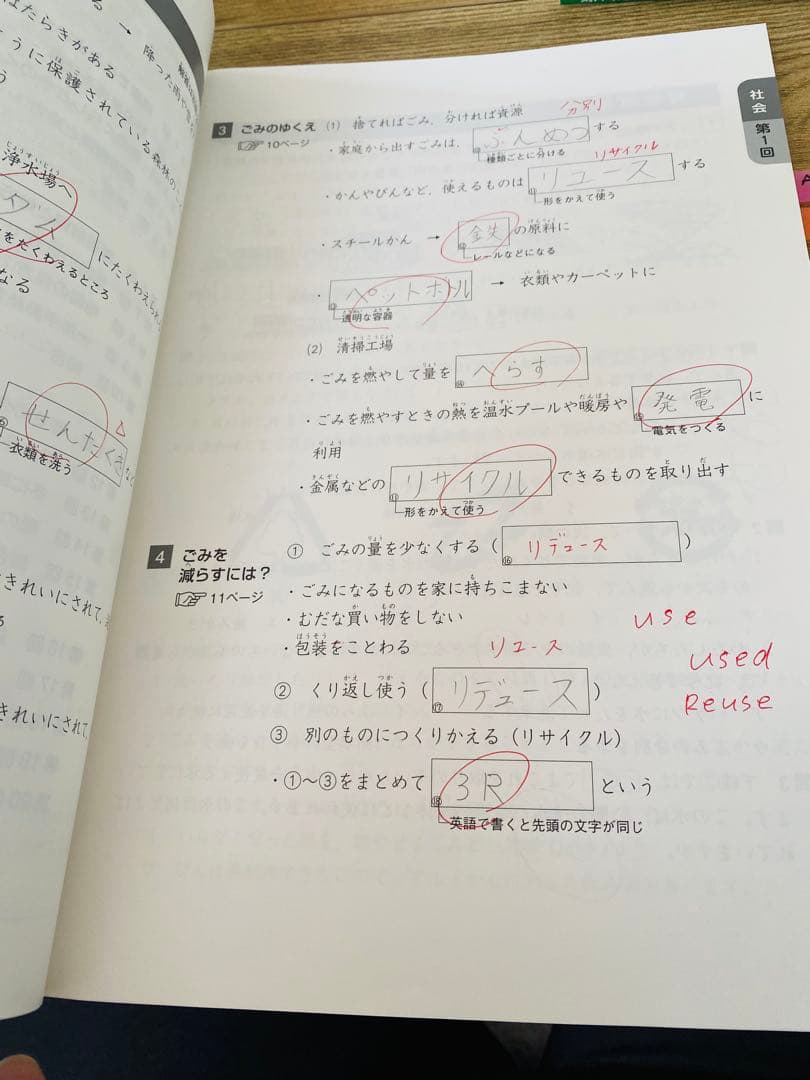 はたらきがある
→ 降った雨や
ように保護されている森林の
浄水場へ
ダム
をたくわえるところ
にたくわえられ
なる
せんたく
△
衣類を洗う
きれいにされて、
きれいにされて、
社会 第1回
3 ごみのゆくえ (1) 捨てればごみ、分ければ資源 分別
☞10ページ
・家庭から出すごみは、ぶんめつする
種類ごとに分ける
リサイクル
・かんやびんなど、使えるものはリユースする
形をかえて使う
・スチールかん → 鉄の原料に
レールなどになる
・ペットボトル → 衣類やカーペットに
透明な容器
(2) 清掃工場
・ごみを燃やして量をへらす
⑭
・ごみを燃やすときの熱を温水プールや暖房や発電に
電気をつくる
利用
・金属などのリサイクルできるものを取り出す
形をかえて使う
4 ごみを減らすには?
☞11ページ
① ごみの量を少なくする(リデュース)
⑯
・ごみになるものを家に持ちこまない
・むだな買い物をしない
use
・包装をことわる リユース
used
② くり返し使う(リデュース)
⑰
Reuse
③ 別のものにつくりかえる(リサイクル)
・①〜③をまとめて3Rという
⑱
英語で書くと先頭の文字が同じ